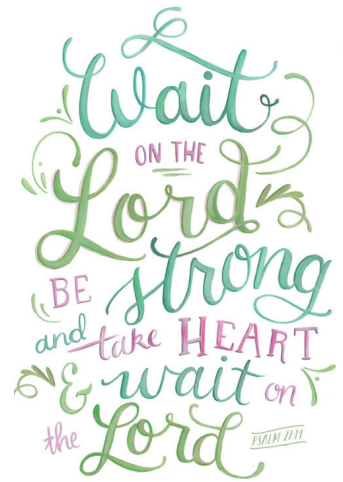 Wait
ON THE
Lord
BE strong
and take HEART
& wait on
the Lord
PSALM 27:14